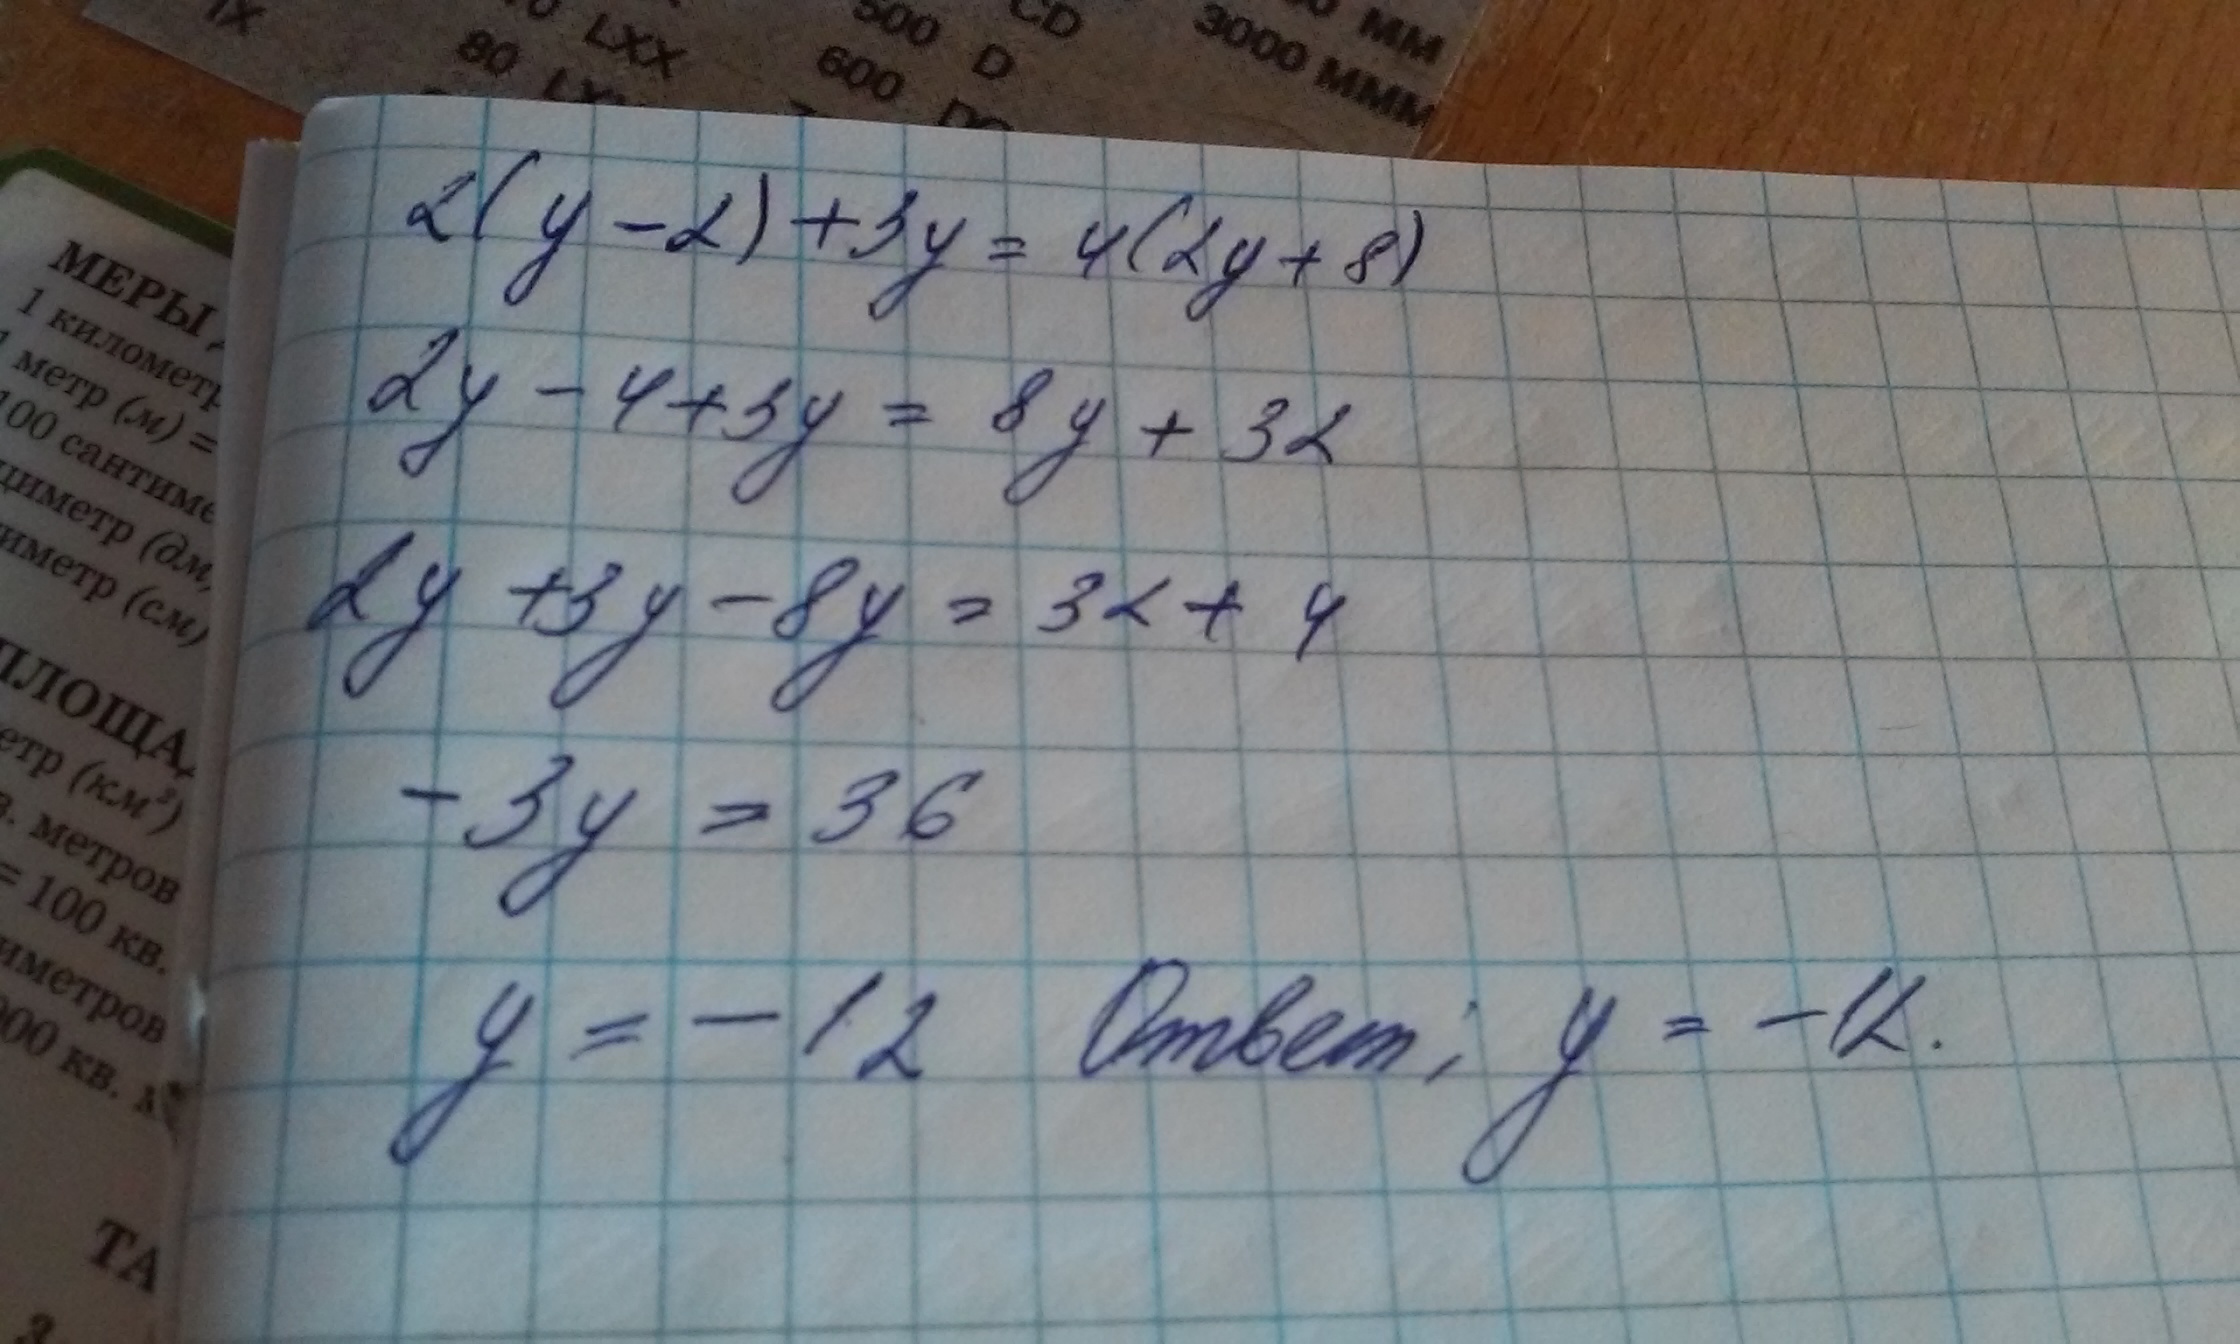 IX
80 LXX
600 D
CD
3000 MMM
MM
МЕРЫ
1 километр
метр (м) =
100 сантиме
циметр (дм,
иметр (см)
ПЛОЩА,
етр (км²)
в. метров
= 100 кв.
иметров
000 кв. м
ТА
2(y-2)+3y=4(2y+8)
2y-4+3y=8y+32
2y+3y-8y=32+4
-3y=36
y=-12 Ответ: y=-12.